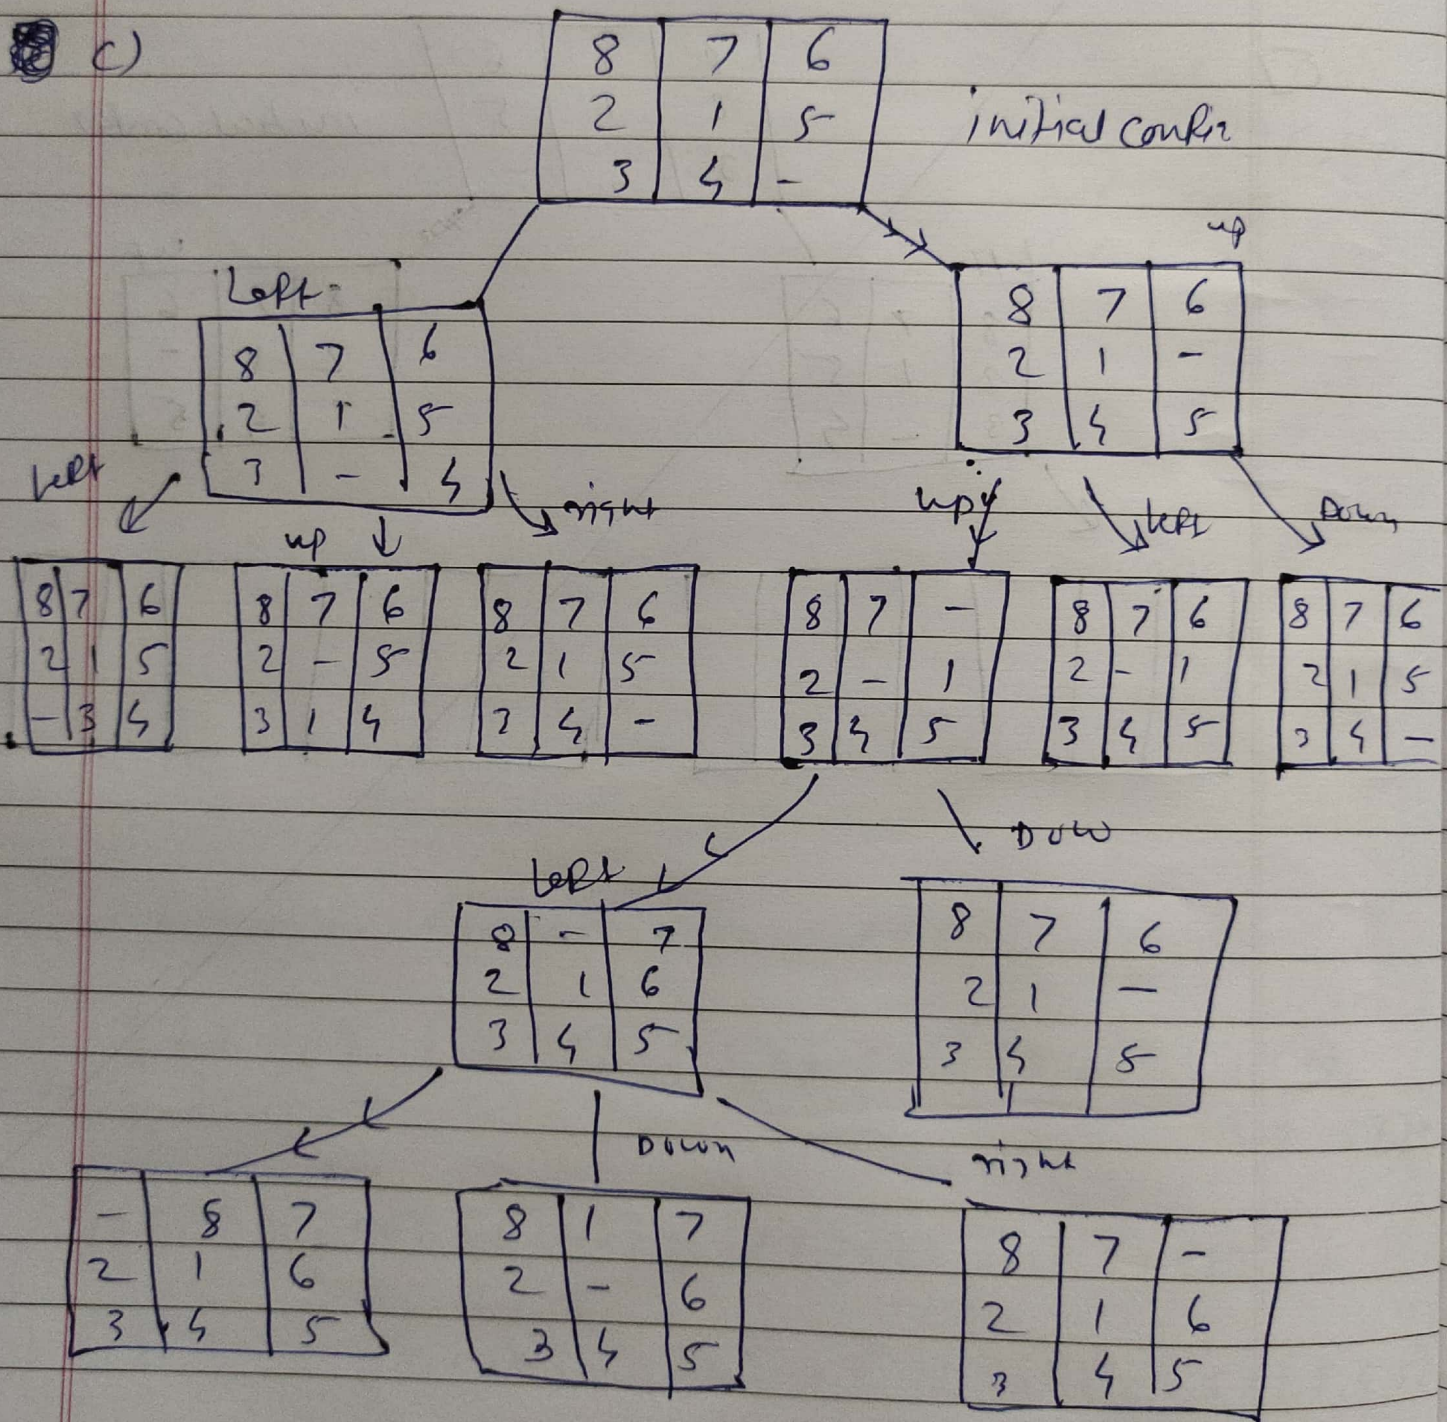 c)
8 7 6
2 1 5
3 4 -
initial config
Left
8 7 6
2 1 5
3 - 4
up
8 7 6
2 1 -
3 4 5
left
up
right
up
left
Down
8 7 6
2 1 5
- 3 4
8 7 6
2 - 5
3 1 4
8 7 6
2 1 5
3 4 -
8 7 -
2 - 1
3 4 5
8 7 6
2 - 1
3 4 5
8 7 6
2 1 5
3 4 -
Left
8 - 7
2 1 6
3 4 5
Dow
8 7 6
2 1 -
3 4 5
Down
right
- 8 7
2 1 6
3 4 5
8 1 7
2 - 6
3 4 5
8 7 -
2 1 6
3 4 5